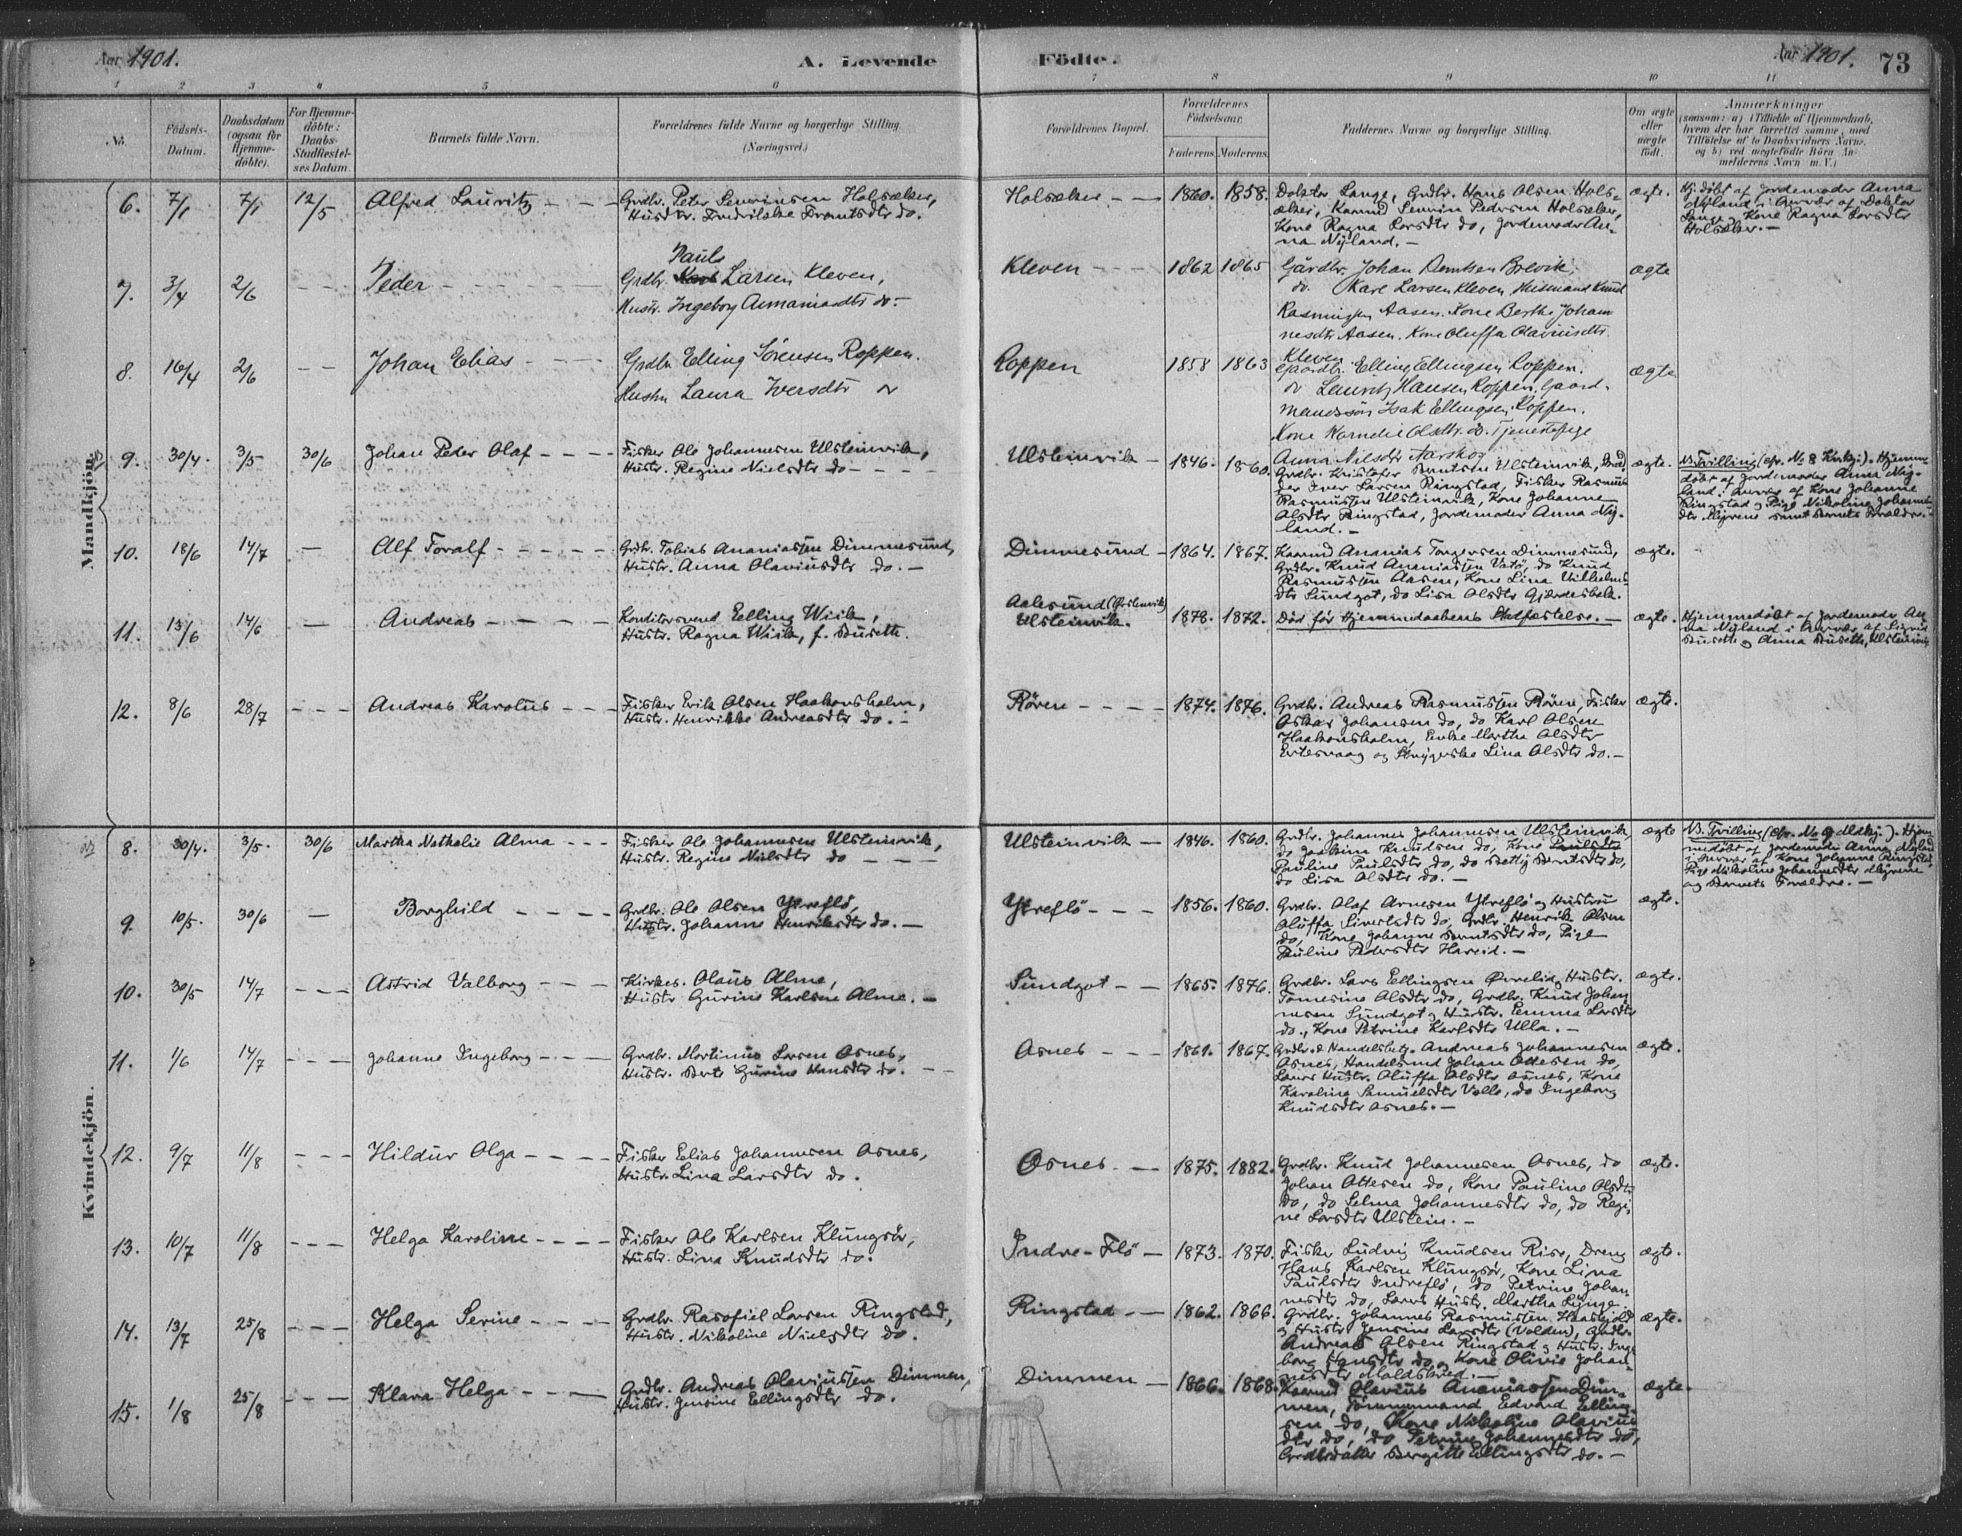 Aar 1901.
A. Levende
Födte.
Aar 1901.
73
1 2 3 4 5 6 7 8 9 10 11
No.
Födsels-Datum.
Daabsdatum (ogsaa for Hjemme-döbte).
For Hjemme-döbte: Daabs-Stadfæstel-ses Datum.
Barnets fulde Navn.
Forældrenes fulde Navne og borgerlige Stilling. (Næringsvei.)
Forældrenes Bopæl.
Forældrenes Födselsaar.
Faderens. Moderens.
Faddernes Navne og borgerlige Stilling.
Om ægte eller uægte födt.
Anmærkninger
(saasom: a) i Tilfælde af Hjemmedaab,
hvem der har forrettet samme, med
Tilföielse af to Daabsvidners Navne,
og b) ved uægtefödte Börn An-
melderens Navn m. V.)
Mandkjön.
6. 7/1 7/1 12/5 Alfred Lauritz
Grdbr. Peter Severinsen Holsæker,
Hustr. Fredrikke Berntsdtr do.
Holsæker 1860. 1858.
Doktor Lange, Grdbr. Hans Olsen Hols-
æker, Kaarmd Severin Pedersen Holsæker,
Kone Ragna Larsdtr do, Jordemoder An-
na Nyland.
ægte.
Hj.døbt af Jordemoder Anna
Nyland i Overvær af Doktor
Lange og Kone Ragna Larsdtr
Holsæker.
7. 3/4 2/6 Peder
Pauls
Grdbr. Larsen Kleven,
Hustr. Ingeborg Annaniasdtr do.
Kleven 1862 1865
Gårdbr. Johan Berntsen Brevik,
do. Karl Larsen Kleven Husmand Knud
Rasmussen Aasen. Kone Berthe Johan
nesdtr Aasen. Kone Oluffa Olaviusdtr
Kleven
ægte
8. 16/4 2/6 Johan Elias
Grdbr Elling Sørensen Roppen.
Hustru Laura Iversdtr do
Roppen 1858 1863
Gaardbr. Elling Ellingsen Roppen.
do Lauritz Hansen Roppen. Gaard-
mandssøn Isak Ellingsen Roppen.
Kone Kornelie Olsdtr. do. Tjenestepige
Anna Nilsdtr Aarskog
ægte
9. 30/4. 3/5 30/6 Johan Peter Olaf
Fisker Ole Johannesen Ulsteinvik,
Hustr. Regine Nielsdtr do
Ulsteinvik 1846. 1860.
Grdbr. Kristofer Berntsen Ulsteinvik,
Iver Larsen Ringstad, Fisker Rasmus
Rasmussen Ulsteinvik, Kone Johanne
Olsdtr Ringstad, Jordemoder Anna Ny-
land.
ægte.
NB. Tvilling (cfr. No 8 Kvkj.). Hjemme-
døbt af Jordemoder Anna Ny-
land i Overvær af Kone Johanne
Ringstad og Pige Nikoline Johannes-
dtr Myrene samt Barnets Forældre.
10. 18/6 14/7 Alf Toralf
Grdbr. Tobias Ananiassen Dimmesund,
Hustr. Anna Olaviusdtr do.
Dimmesund 1864. 1867.
Kaarmd Ananias Torgersen Dimmesund,
Grdbr. Knud Ananiassen Vatø, do Knud
Rasmussen Aasen, Kone Lina Vilhelms-
dtr Sundgot, do Lisa Olsdtr Gjærdesbak.
ægte.
11. 13/6 14/6 Andreas
Konditorsvend Elling Wiik,
Hustr. Ragna Wiik, f. Busette.
Aalesund (Ulsteinvik)
Ulsteinvik. 1878. 1872.
Død før Hjemmedaabens Stadfæstelse.
ægte.
Hjemmedøbt af Jordemoder An-
na Nyland i Overvær af Sigrid
Busette og Anna Busette, Ulsteinvik
12. 8/6 28/7 Andreas Karolus
Fisker Erik Olsen Haakonsholm,
Hustr. Henrikke Andreasdtr do.
Røren 1874. 1876.
Grdbr. Andreas Rasmussen Røren, Fisker
Oskar Johansen do, do Karl Olsen
Haakonsholm, Enke Martha Olsdtr
Eltesvaag og Strygerske Lina Olsdtr do.
ægte.
Kvindekjön.
8. 30/4. 3/5. 30/6 Martha Nathalie Alma
Fisker Ole Johannesen Ulsteinvik,
Hustr. Regine Nielsdtr do
Ulsteinvik 1846. 1860.
Grdbr. Johannes Johannesen Ulsteinvik,
do Joakim Knudsen do, Kone
Pauline Paulsdtr do, do Betty Berntsdtr do,
do Lisa Olsdtr do.
ægte
NB. Tvilling (cfr. No 9 Mdkj.). Hjem-
medøbt af Jordemoder Anna Nyland
i Overvær af Kone Johanne Ringstad,
Pige Nikoline Johannesdtr Myrene
og Barnets Forældre.
9. 10/5. 30/6 Borghild
Grdbr. Ole Olsen Ytreflø,
Hustr. Johanne Henriksdtr do.
Ytreflø 1856. 1860.
Grdbr. Olaf Arnesen Ytreflø og Hustru
Oluffa Sivertsdtr do, Grdbr. Henrik Olsen
do, Kone Johanne Berntsdtr do, Pige
Pauline Pedersdtr Hareid.
ægte.
10. 30/5 14/7 Astrid Valborg
Kirkes. Olaus Alme,
Hustr Gurine Karlsen Alme.
Sundgot 1865. 1876.
Grdbr. Lars Ellingsen Øvrelid og Hustr.
Tomesine Olsdtr do, Grdbr. Knud Johan-
nesen Sundgot og Hustr. Emma Larsdtr
do., Kone Petrine Karlsdtr Ulla.
ægte.
11. 1/6 14/7 Johanne Ingeborg
Grdbr. Martinus Larsen Osnes,
Hustr. Berte Gurine Hansdtr do.
Osnes 1861. 1867.
Grdbr. & Handelsbetj. Andreas Johannesen
Osnes, Handelsmd Johan Ottesen do,
Hustr. Oluffa Olsdtr Osnes, Kone
Karoline Samuelsdtr Valle, do Ingeborg
Knudsdtr Osnes.
ægte.
12. 9/7 11/8 Hildur Olga
Fisker Elias Johannesen Osnes,
Hustr. Lina Larsdtr do.
Osnes 1875. 1882.
Grdbr. Knud Johannesen Osnes, do
Johan Ottesen do, Kone Pauline Olsdtr
do, do Selma Johannesdtr do, do Regi-
ne Larsdtr Ulstein.
ægte.
13. 10/7 11/8 Helga Karoline
Fisker Ole Karlsen Klungsør,
Hustr. Lina Knudsdtr do.
Indre-Flø 1873. 1870.
Fisker Ludvig Knudsen Rise, Dreng
Hans Karlsen Klungsør, Kone Lina
Paulsdtr Indreflø, do Petrine Johan-
nesdtr do, Hustr. Martha Lynge.
ægte.
14. 13/7 25/8 Helga Serine
Grdbr. Rasofiel Larsen Ringstad,
Hustr. Nikoline Nielsdtr do.
Ringstad 1862. 1866.
Grdbr. Johannes Rasmussen Haaskjold
og Hustr Jensine Larsdtr (Volden), Grdbr.
Andreas Olsen Ringstad og Hustr. Inge-
borg Hansdtr do og Kone Olivie Johan-
nesdtr
ægte.
15. 1/8 25/8 Klara Helga
Grdbr. Andreas Olaviussen Dimmen,
Hustr. Jensine Ellingsdtr do.
Dimmen 1866. 1868.
Kaarmd Olavius Ananiassen Dim-
men, Tømmermand Edvard Elling-
sen do, Kone Nikoline Olavius-
dtr do, do Petrine Johannesdtr do,
Grdbrdatter Bergitte Ellingsdtr do.
ægte.